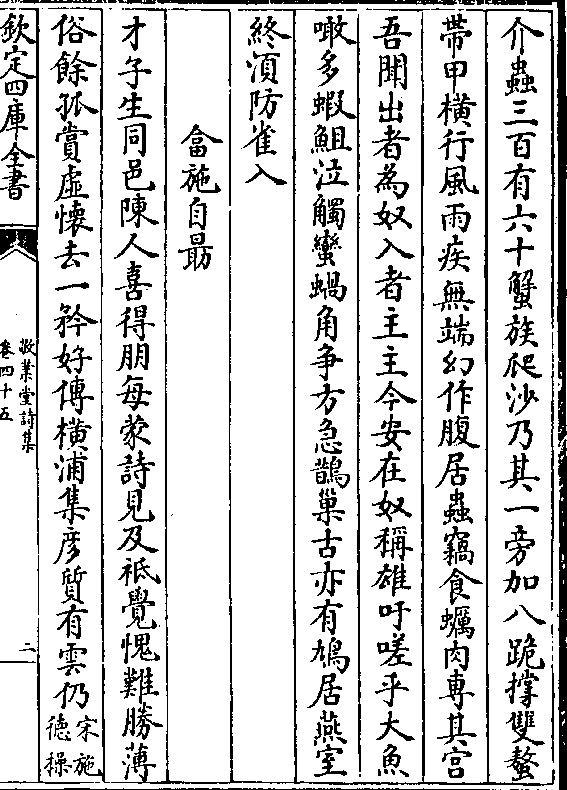 介蟲三百有六十蟹族爬沙乃其一旁加八跪撐雙螯
帶甲橫行風雨疾無端幻作腹居蟲竊食蠣肉專其宫
吾聞出者為奴入者主主今安在奴稱雄吁嗟乎大魚
噉多蝦鮙泣觸蠻蝸角争方急鵲巢古亦有鳩居燕室
終湏防雀入
畣施自勗
才子生同邑陳人喜得朋每蒙詩見及祗覺愧難勝薄
俗餘孤賞虚懷去一矜好傳橫浦集彦質有雲仍宋施德操
欽定四庫全書
敬業堂詩集
卷四十五
二